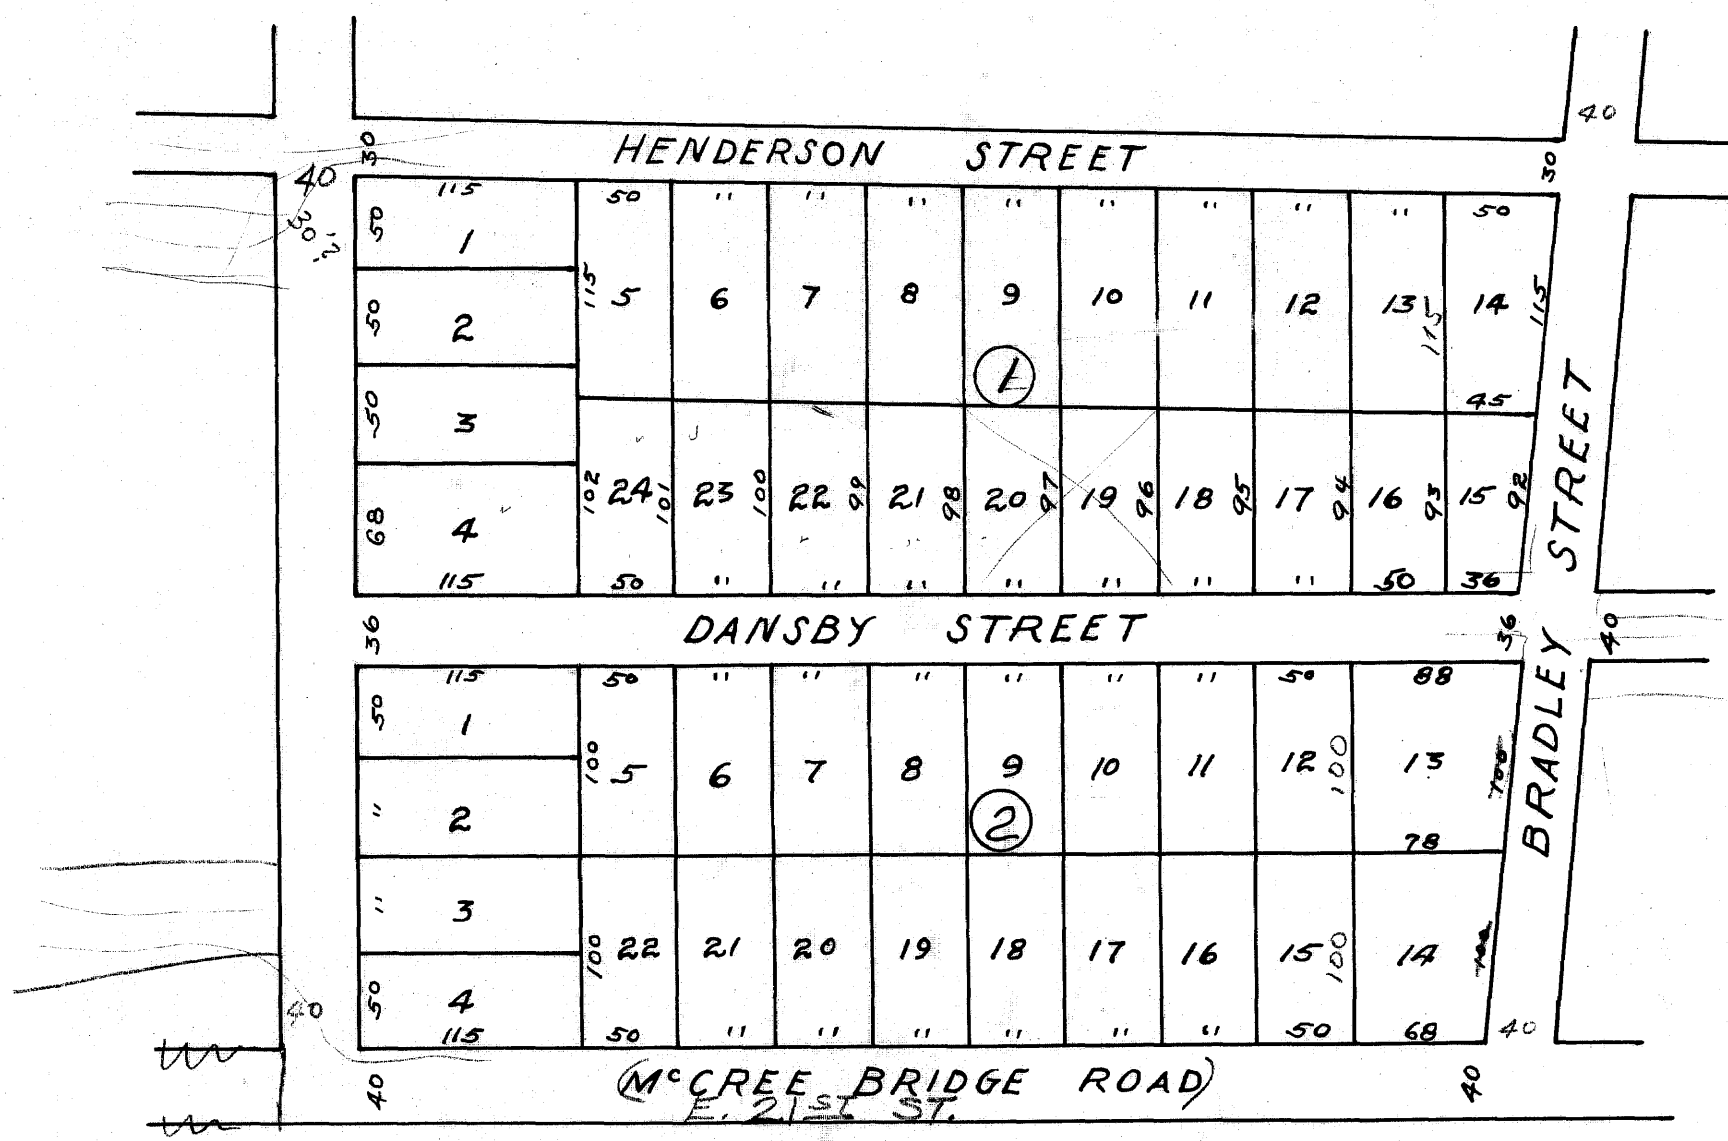 40
30 HENDERSON STREET 30
40
30'.2
115 50 " " " " " " " " 50
50 1
115 5 6 7 8 9 10 11 12 13 115 14 115
50 2
1
45
50 3
102 24 101 23 100 22 99 21 98 20 97 19 96 18 95 17 94 16 93 15 92
68 4
115 50 " " " " " " " 50 36
36 DANSBY STREET 36 40
BRADLEY STREET
115 50 " " " " " " 50 88
50 1
100 5 6 7 8 9 10 11 12 100 13 100
" 2
2
78
" 3
100 22 21 20 19 18 17 16 15 100 14 100
50 4
40
115 50 " " " " " " 50 68 40
40 (McCREE BRIDGE ROAD) 40
E. 21st ST.